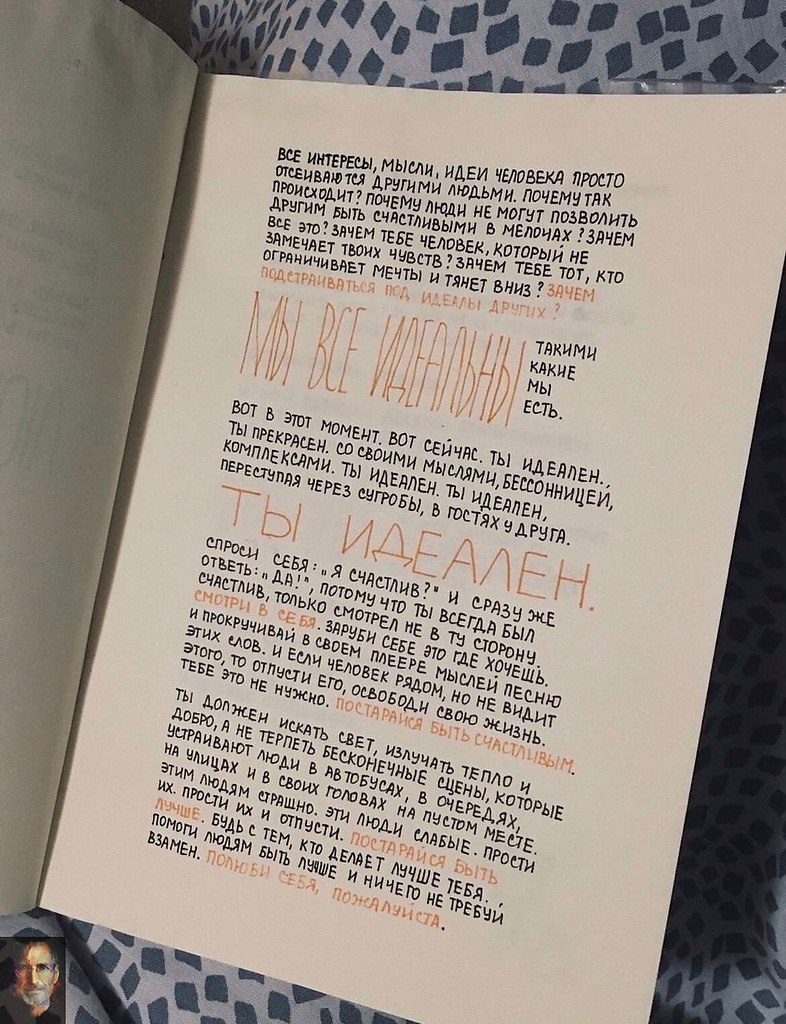 ВСЕ ИНТЕРЕСЫ, МЫСЛИ, ИДЕИ ЧЕЛОВЕКА ПРОСТО
ОТСЕИВАЮТСЯ ДРУГИМИ ЛЮДЬМИ. ПОЧЕМУ ТАК
ПРОИСХОДИТ? ПОЧЕМУ ЛЮДИ НЕ МОГУТ ПОЗВОЛИТЬ
ДРУГИМ БЫТЬ СЧАСТЛИВЫМИ В МЕЛОЧАХ? ЗАЧЕМ
ВСЕ ЭТО? ЗАЧЕМ ТЕБЕ ЧЕЛОВЕК, КОТОРЫЙ НЕ
ЗАМЕЧАЕТ ТВОИХ ЧУВСТВ? ЗАЧЕМ ТЕБЕ ТОТ, КТО
ОГРАНИЧИВАЕТ МЕЧТЫ И ТЯНЕТ ВНИЗ? ЗАЧЕМ
ПОДСТРАИВАТЬСЯ ПОД ИДЕАЛЫ ДРУГИХ?
МЫ ВСЕ ИДЕАЛЬНЫ
ТАКИМИ
КАКИЕ
МЫ
ЕСТЬ.
ВОТ В ЭТОТ МОМЕНТ. ВОТ СЕЙЧАС. ТЫ ИДЕАЛЕН.,
ТЫ ПРЕКРАСЕН. СО СВОИМИ МЫСЛЯМИ, БЕССОННИЦЕЙ,
КОМПЛЕКСАМИ. ТЫ ИДЕАЛЕН. ТЫ ИДЕАЛЕН,
ПЕРЕСТУПАЯ ЧЕРЕЗ СУГРОБЫ, В ГОСТЯХ У ДРУГА.
ТЫ ИДЕАЛЕН.
СПРОСИ СЕБЯ: „Я СЧАСТЛИВ?" И СРАЗУ ЖЕ
ОТВЕТЬ: „ДА!", ПОТОМУ ЧТО ТЫ ВСЕГДА БЫЛ
СЧАСТЛИВ, ТОЛЬКО СМОТРЕЛ НЕ В ТУ СТОРОНУ.
СМОТРИ В СЕБЯ. ЗАРУБИ СЕБЕ ЭТО ГДЕ ХОЧЕШЬ.
И ПРОКРУЧИВАЙ В СВОЕМ ПЛЕЕРЕ МЫСЛЕЙ ПЕСНЮ
ЭТИХ СЛОВ. И ЕСЛИ ЧЕЛОВЕК РЯДОМ, НО НЕ ВИДИТ
ЭТОГО, ТО ОТПУСТИ ЕГО, ОСВОБОДИ СВОЮ ЖИЗНЬ.
ТЕБЕ ЭТО НЕ НУЖНО. ПОСТАРАЙСЯ БЫТЬ СЧАСТЛИВЫМ.
ТЫ ДОЛЖЕН ИСКАТЬ СВЕТ, ИЗЛУЧАТЬ ТЕПЛО И
ДОБРО, А НЕ ТЕРПЕТЬ БЕСКОНЕЧНЫЕ СЦЕНЫ, КОТОРЫЕ
УСТРАИВАЮТ ЛЮДИ В АВТОБУСАХ, В ОЧЕРЕДЯХ,
НА УЛИЦАХ И В СВОИХ ГОЛОВАХ НА ПУСТОМ МЕСТЕ.
ЭТИМ ЛЮДЯМ СТРАШНО. ЭТИ ЛЮДИ СЛАБЫЕ. ПРОСТИ
ИХ. ПРОСТИ ИХ И ОТПУСТИ. ПОСТАРАЙСЯ БЫТЬ
ЛУЧШЕ. БУДЬ С ТЕМ, КТО ДЕЛАЕТ ЛУЧШЕ ТЕБЯ. ,
ПОМОГИ ЛЮДЯМ БЫТЬ ЛУЧШЕ И НИЧЕГО НЕ ТРЕБУЙ
ВЗАМЕН. ПОЛЮБИ СЕБЯ, ПОЖАЛУЙСТА.